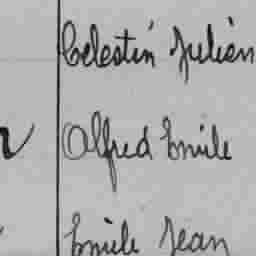 Celestin Julien
Alfred Emile
Emile Jean